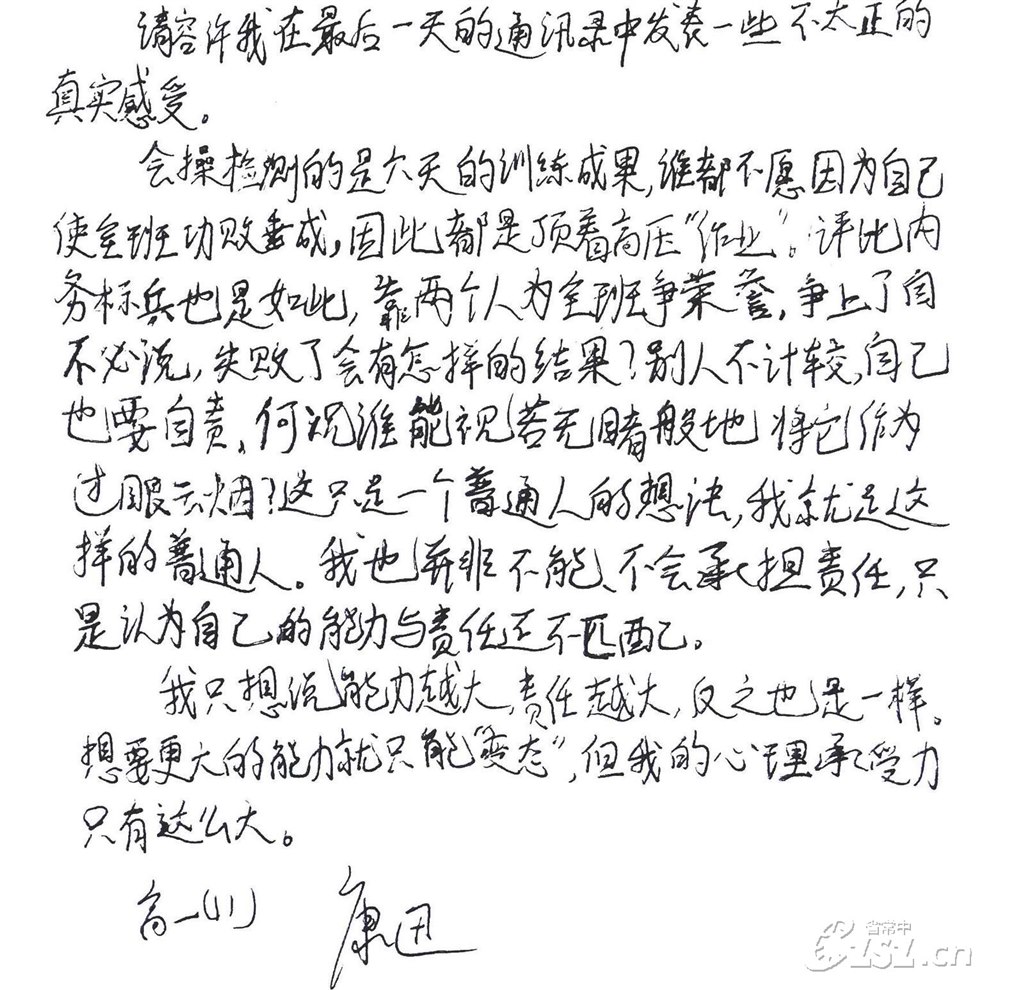 请容许我在最后一天的通讯录中发表一些不太正的
真实感受。
会操检测的是六天的训练成果,谁都不愿因为自己
使全班功败垂成,因此都是顶着高压“作业”。评比内
务标兵也是如此,靠两个人为全班争荣誉,争上了自
不必说,失败了会有怎样的结果?别人不计较,自己
也要自责,何况谁能视若无睹般地将它作为
过眼云烟?这只是一个普通人的想法,我就是这
样的普通人。我也并非不能、不会承担责任,只
是认为自己的能力与责任还不匹配。
我只想说能力越大,责任越大,反之也是一样。
想要更大的能力就只能“变态”,但我的心理承受力
只有这么大。
高一(11) 康迅
省常中
CSZ.cn